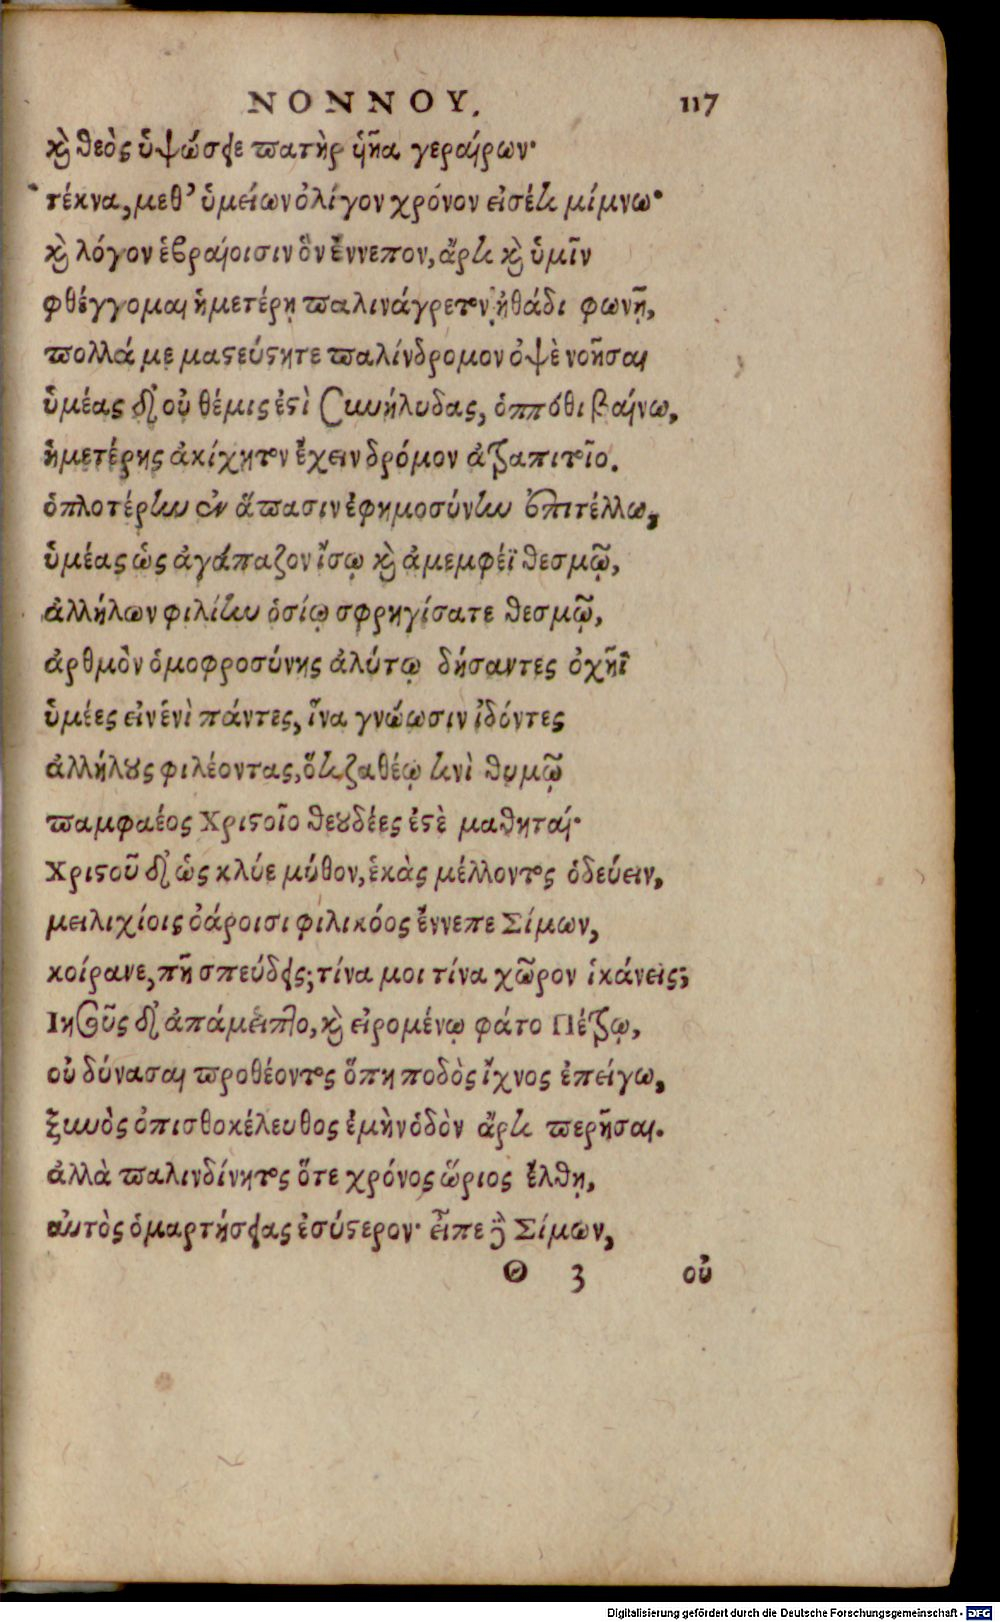 ΝΟΝΝΟΥ. 117
καὶ θεὸς ὑψώσειε πατὴρ ὑῆα γεραίρων·
τέκνα, μεθ' ὑμείων ὀλίγον χρόνον εἰσέτι μίμνω·
καὶ λόγον ἑβραίοισιν ὃν ἔννεπον, ἄρτι καὶ ὑμῖν
φθέγγομαι ἡμετέρῃ παλινάγρετον ἠθάδι φωνῇ,
πολλά με μαστεύσητε παλίνδρομον ὀψὲ νοῆσαι
ὑμέας δ' οὐ θέμις ἐστὶ συνήλυδας, ὁππόθι βαίνω,
ἡμετέρης ἀκίχητον ἔχειν δρόμον ἀτραπιτοῖο.
ὁπλοτέρην ἐν ἅπασιν ἐφημοσύνην ἐπιτέλλω,
ὑμέας ὡς ἀγάπαζον ἴσῳ καὶ ἀμεμφέϊ θεσμῷ,
ἀλλήλων φιλίην ὁσίῳ σφρηγίσατε θεσμῷ,
ἀρθμὸν ὁμοφροσύνης ἀλύτῳ δήσαντες ὀχῆϊ
ὑμέες εἰν ἑνὶ πάντες, ἵνα γνώωσιν ἰδόντες
ἀλλήλους φιλέοντας, ὅτι ζαθέῳ ἑνὶ θυμῷ
παμφαέος Χριστοῖο θεουδέες ἐστὲ μαθηταί·
Χριστοῦ δ' ὡς κλύε μύθον, ἑκὰς μέλλοντος ὁδεύειν,
μειλιχίοις ὀάροισι φιλικόος ἔννεπε Σίμων,
κοίρανε, πῆ σπεύδεις; τίνα μοι τίνα χῶρον ἱκάνεις;
Ιησοῦς δ' ἀπάμειπτο, καὶ εἰρομένῳ φάτο Πέτρῳ,
οὐ δύνασαι προθέοντος ὅπη ποδὸς ἴχνος ἐπείγω,
ξυνὸς ὀπισθοκέλευθος ἐμὴν ὁδὸν ἄρτι περῆσαι.
ἀλλὰ παλινδίνητος ὅτε χρόνος ὥριος ἔλθῃ,
αὐτὸς ὁμαρτήσειας ἐσύστερον· εἶπε δὲ Σίμων,
Θ 3 οὐ
Digitalisierung gefördert durch die Deutsche Forschungsgemeinschaft - DFG